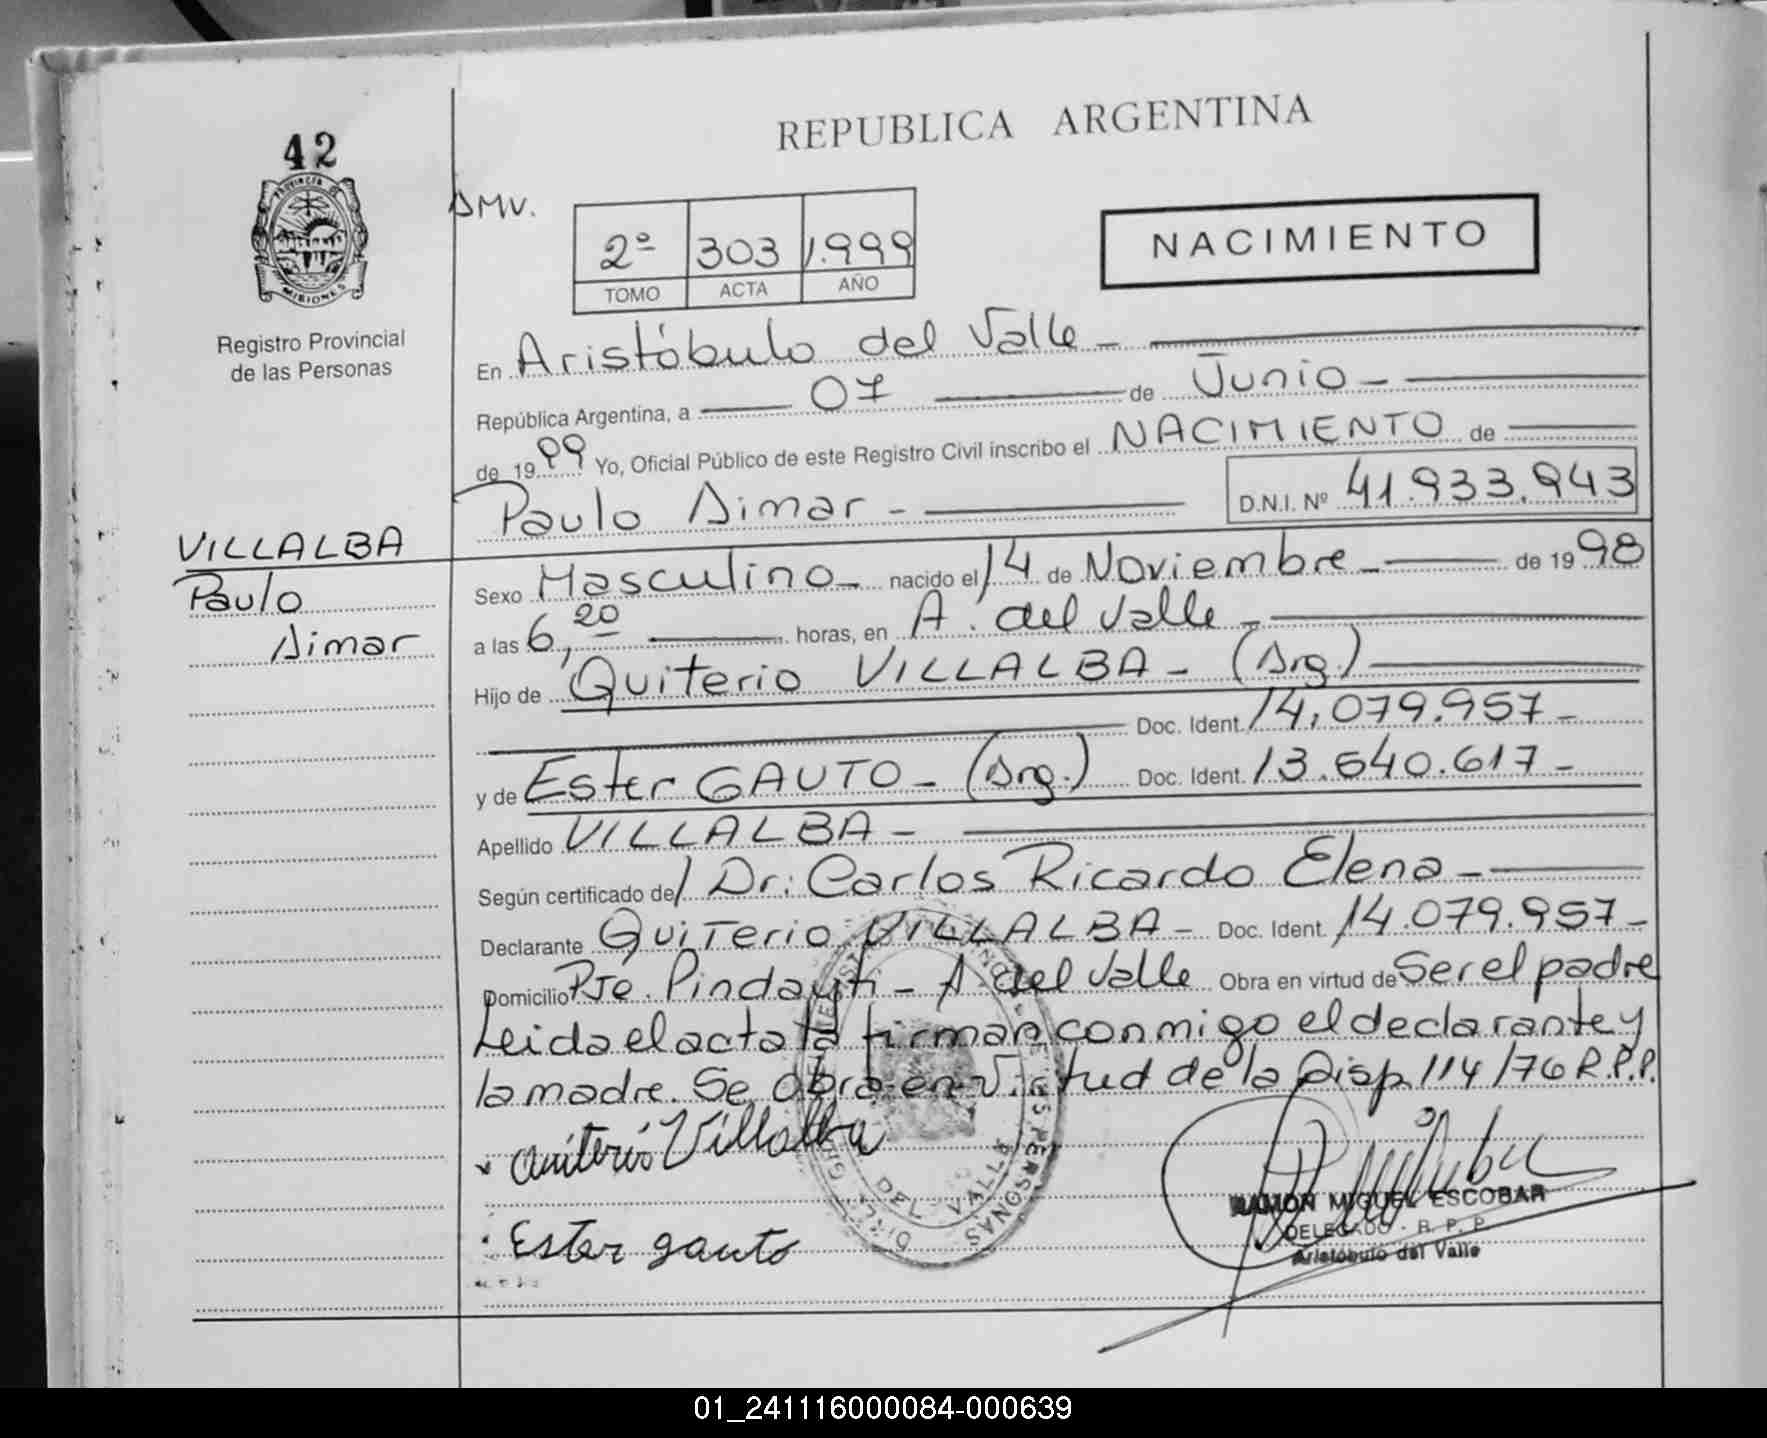 REPUBLICA ARGENTINA
42
PROVINCIA DE
MISIONES
Registro Provincial
de las Personas
AMV.
2º 303 1.999
TOMO ACTA AÑO
NACIMIENTO
En Aristóbulo del Valle -
República Argentina, a 07 de Junio -
de 1999 Yo, Oficial Público de este Registro Civil inscribo el NACIMIENTO de
Paulo Aimar - D.N.I. Nº 41.933.943
VILLALBA
Paulo
Aimar
Sexo Masculino - nacido el 14 de Noviembre - de 1998
a las 6,20 horas, en A. del Valle -
Hijo de Quiterio VILLALBA - (Arg.)
Doc. Ident. 14.079.957 -
y de Ester GAUTO - (Arg.) Doc. Ident. 13.640.617 -
Apellido VILLALBA -
Según certificado de/ Dr: Carlos Ricardo Elena -
Declarante Quiterio VILLALBA - Doc. Ident. 14.079.957 -
Domicilio Pje. Pindayti - A. del Valle Obra en virtud de Ser el padre
Leida el acta la firman conmigo el declarante y
la madre. Se obra en Virtud de la Disp. 114/76 R.P.P.
Quiterio Villalba
Ester gauto
RAMON MIGUEL ESCOBAR
DELEGADO - R. P. P.
Aristóbulo del Valle
01_241116000084-000639